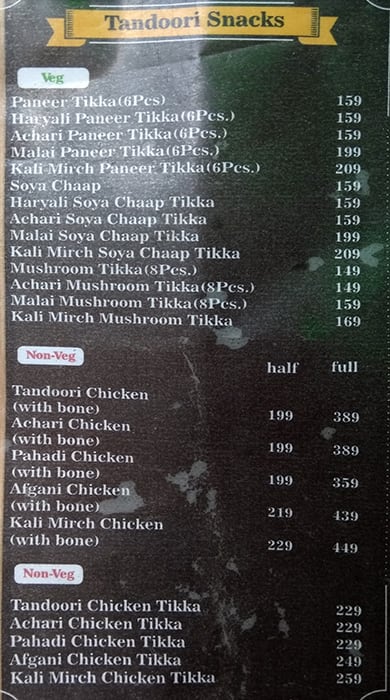 Tandoori Snacks
Veg
Paneer Tikka(6Pcs) 159
Haryali Paneer Tikka(6Pcs.) 159
Achari Paneer Tikka(6Pcs.) 159
Malai Paneer Tikka(6Pcs.) 199
Kali Mirch Paneer Tikka(6Pcs.) 209
Soya Chaap 159
Haryali Soya Chaap Tikka 159
Achari Soya Chaap Tikka 159
Malai Soya Chaap Tikka 199
Kali Mirch Soya Chaap Tikka 209
Mushroom Tikka(8Pcs.) 149
Achari Mushroom Tikka(8Pcs.) 149
Malai Mushroom Tikka(8Pcs.) 159
Kali Mirch Mushroom Tikka 169
Non-Veg
half full
Tandoori Chicken
(with bone) 199 389
Achari Chicken
(with bone) 199 389
Pahadi Chicken
(with bone) 199 359
Afgani Chicken
(with bone) 219 439
Kali Mirch Chicken
(with bone) 229 449
Non-Veg
Tandoori Chicken Tikka 229
Achari Chicken Tikka 229
Pahadi Chicken Tikka 229
Afgani Chicken Tikka 249
Kali Mirch Chicken Tikka 259